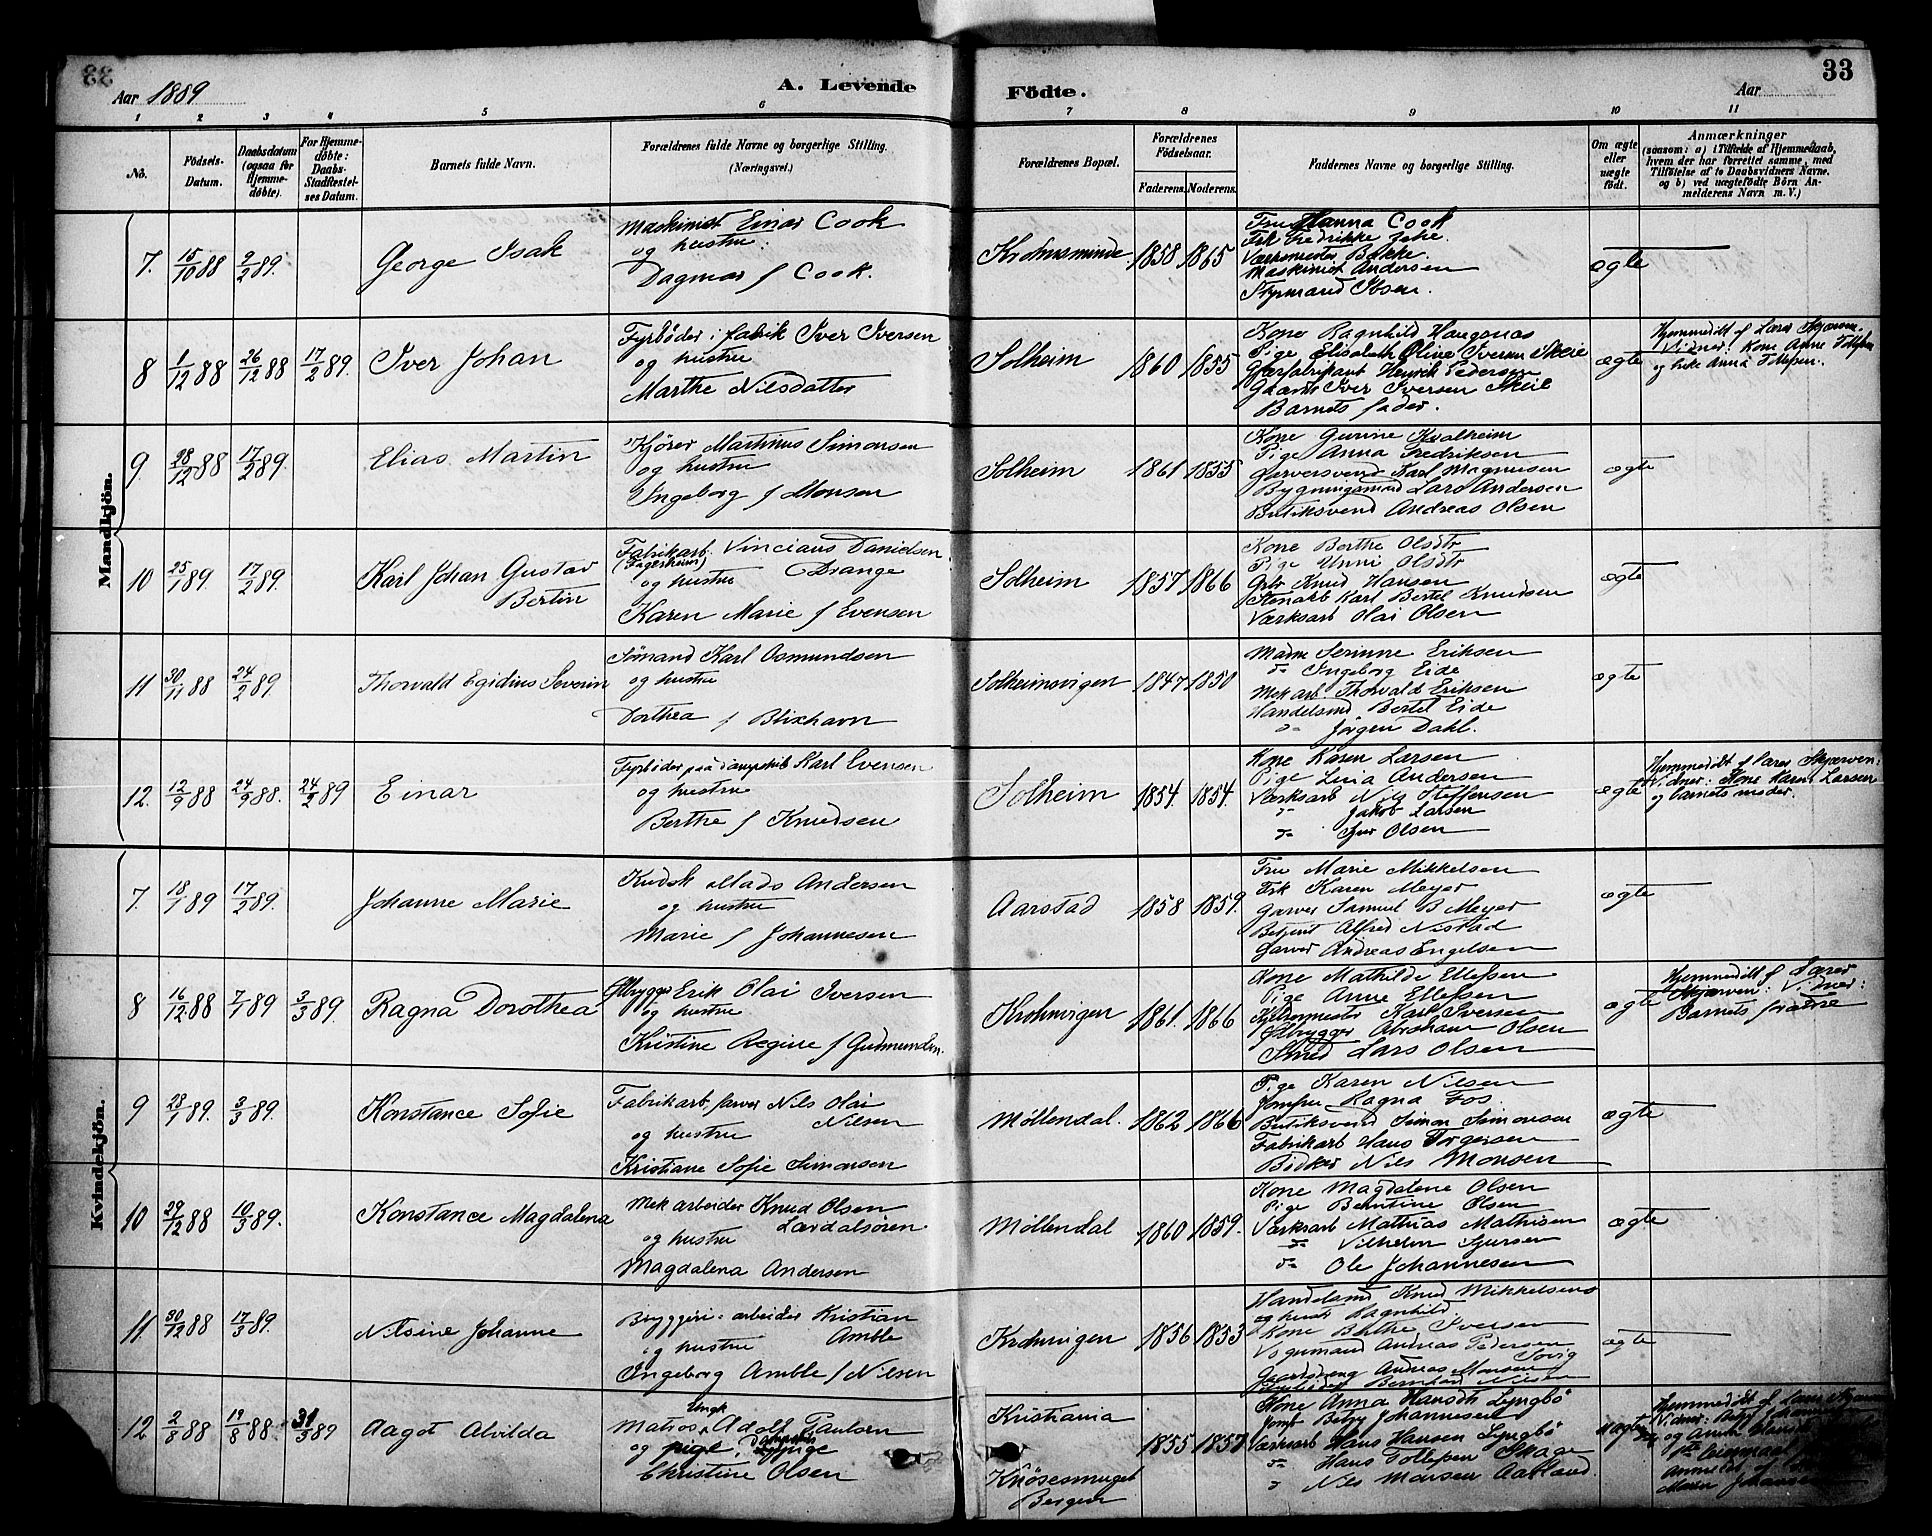 Aar 1889
A. Levende
Födte.
Aar
33
1 2 3 4 5 6 7 8 9 10 11
No.
Födsels-Datum.
Daabsdatum (ogsaa for Hjemme-döbte).
For Hjemme-döbte: Daabs-Stadfæstel-ses Datum.
Barnets fulde Navn.
Forældrenes fulde Navne og borgerlige Stilling.
(Næringsvei.)
Forældrenes Bopæl.
Forældrenes Födselsaar.
Faderens. Moderens.
Faddernes Navne og borgerlige Stilling.
Om ægte eller uægte födt.
Anmærkninger
(saasom: a) i Tilfælde af Hjemmedaab, hvem der har forrettet samme, med Tilföielse af to Daabsvidners Navne, og b) ved uægtefödte Börn An-melderens Navn m. V.)
Mandkjön.
7. 15/10 88 9/2 89. George Isak
Maskinist Einar Cook
og hustru:
Dagmar f Cook.
Krohnsminde 1858 1865
Fru Hanna Cook
Frk Fredrikke
Værkmester Bakke.
Maskinist Andersen
Styrmand Ibsen.
ægte
8 1/12 88 26/12 88 17/2 89. Iver Johan
Fyrbøder i fabrik Iver Iversen
og hustru
Marthe Nilsdatter
Solheim 1860 1855
Kone Ragnhild Haugenæs
Pige Elisabeth Oline Iversen Skeie
Gjærfabrikant Henrik Pedersen
Gaardbr Iver Iversen Skeie
Barnets fader.
ægte
Hjemmedøbt af Lærer Skjærven.
Vidner: Kone Anne Tellefsen
og Anna Tellefsen.
9. 28/12 88 17/2 89. Elias Martin
Kjører Martinus Simonsen
og hustru
Ingeborg f Monsen
Solheim 1861 1855
Kone Gurine Kvalheim
Pige Anna Fredriksen
Garversvend Karl Magnusen
Bygningsmand Lars Andersen
Butiksvend Andreas Olsen
ægte
10 25/1 89. 17/2 89. Karl Johan Gustav Bertin
Fabrikarb. Vincians Danielsen
(Fagerheim) Drange
og hustru
Karen Marie f Evensen
Solheim 1857 1866
Kone Berthe Olsdtr
Pige Unni Olsdtr
Gbr Knud Hansen
Stenarb Karl Bertel Knudsen
Værksarb Olai Olsen
ægte
11 30/11 88 24/2 89 Thorvald Egidius Severin
Sømand Karl Osmundsen
og hustru
Dorthea f Blixhavn
Solheimsvigen 1847 1850
Madm Serinne Eriksen
do Ingeborg Eide
Mek arb Thorvald Eriksen
Handelsmd Bertel Eide
do Jörgen Dahl.
ægte
12. 12/9 88 24/9 88. 24/2 89 Einar
Fyrbøder paa Dampskib Karl Evensen
og hustru
Berthe f Knudsen
Solheim 1854. 1854.
Kone Karen Larsen
Pige Lina Andersen
Værksarb Nils Steffensen
do Jakob Larsen
do Sjur Olsen
ægte
Hjemmedøbt af Lærer Skjærven:
Vidner: Kone Karen Larsen
og barnets moder.
Kvindekjön.
7. 18/1 89 17/2 89. Johanne Marie
Kudsk Mads Andersen
og hustru
Marie f Johannesen
Aarstad 1858 1859.
Fru Marie Mikkelsen
Frk Karen Meyer
Garver Samuel B Meyer
Betjent Alfred Nistad
Garver Andreas Engelsen
ægte
8 16/12 88 7/1 89 3/3 89. Ragna Dorothea
Ølbrygger Erik Olai Iversen
og hustru
Kristine Regine f Gudmundsen.
Krohnvigen 1861. 1866
Kone Mathilde Ellefsen
Pige Anne Ellefsen
Kjeldermester Karl Iversen
Ølbrygger Abraham Olsen
Smed Lars Olsen
ægte
Hjemmedøbt af Lærer
Skjærven: Vidner:
Barnets forældre
9 28/1 89. 3/3 89. Konstance Sofie
Fabrikarb, farver Nils Olai
Nilsen
og hustru
Kristiane Sofie Simonsen
Møllendal. 1862 1866
Pige Karen Nilsen
Jomfru Ragna Fos.
Butiksvend Simon Simonsen
Fabrikarb Hans Torgersen
Bødker Nils Monsen
ægte
10 29/12 88 10/3 89. Konstance Magdalena
Mek arbeider Knud Olsen
Lærdalsören
og hustru
Magdalena Andersen
Møllendal 1860 1859.
Kone Magdalene Olsen
Pige Berntine Olsen
Værksarb Mathias Mathisen
do Vilhelm Sjursen
do Ole Johannesen
ægte
11. 30/12 88 17/3 89. Nilsine Johanne
Bryggeri-arbeider Kristian
Amble
og hustru
Ingeborg Amble f Nilsen
Krohnvigen 1856 1853
Handelsmd Knud Mikkelsen
og hustr Ragnhild
Kone Berthe Iversen
Vognmand Andreas Pedersen
Gaardsdreng Andreas Monsen
Bernhard Nilsen
ægte
12 2/8 88 19/8 88 31/3 89 Aagot Alvilda
Ungk
Matros Adolf Paulsen
og pige,
Christine Olsen
Kristiania
Knösesmuget
Bergen
1855 1857
Kone Anna Hansdtr Lyngbö
Jomf Betzy Johannesen
Værksarb Hans Hansen Lyngbö
do Hans Tollefsen Skage
do Nils Monsen Aabland.
uægte
Hjemmedøbt af Lærer
Vidner:
og
Anmeldt af